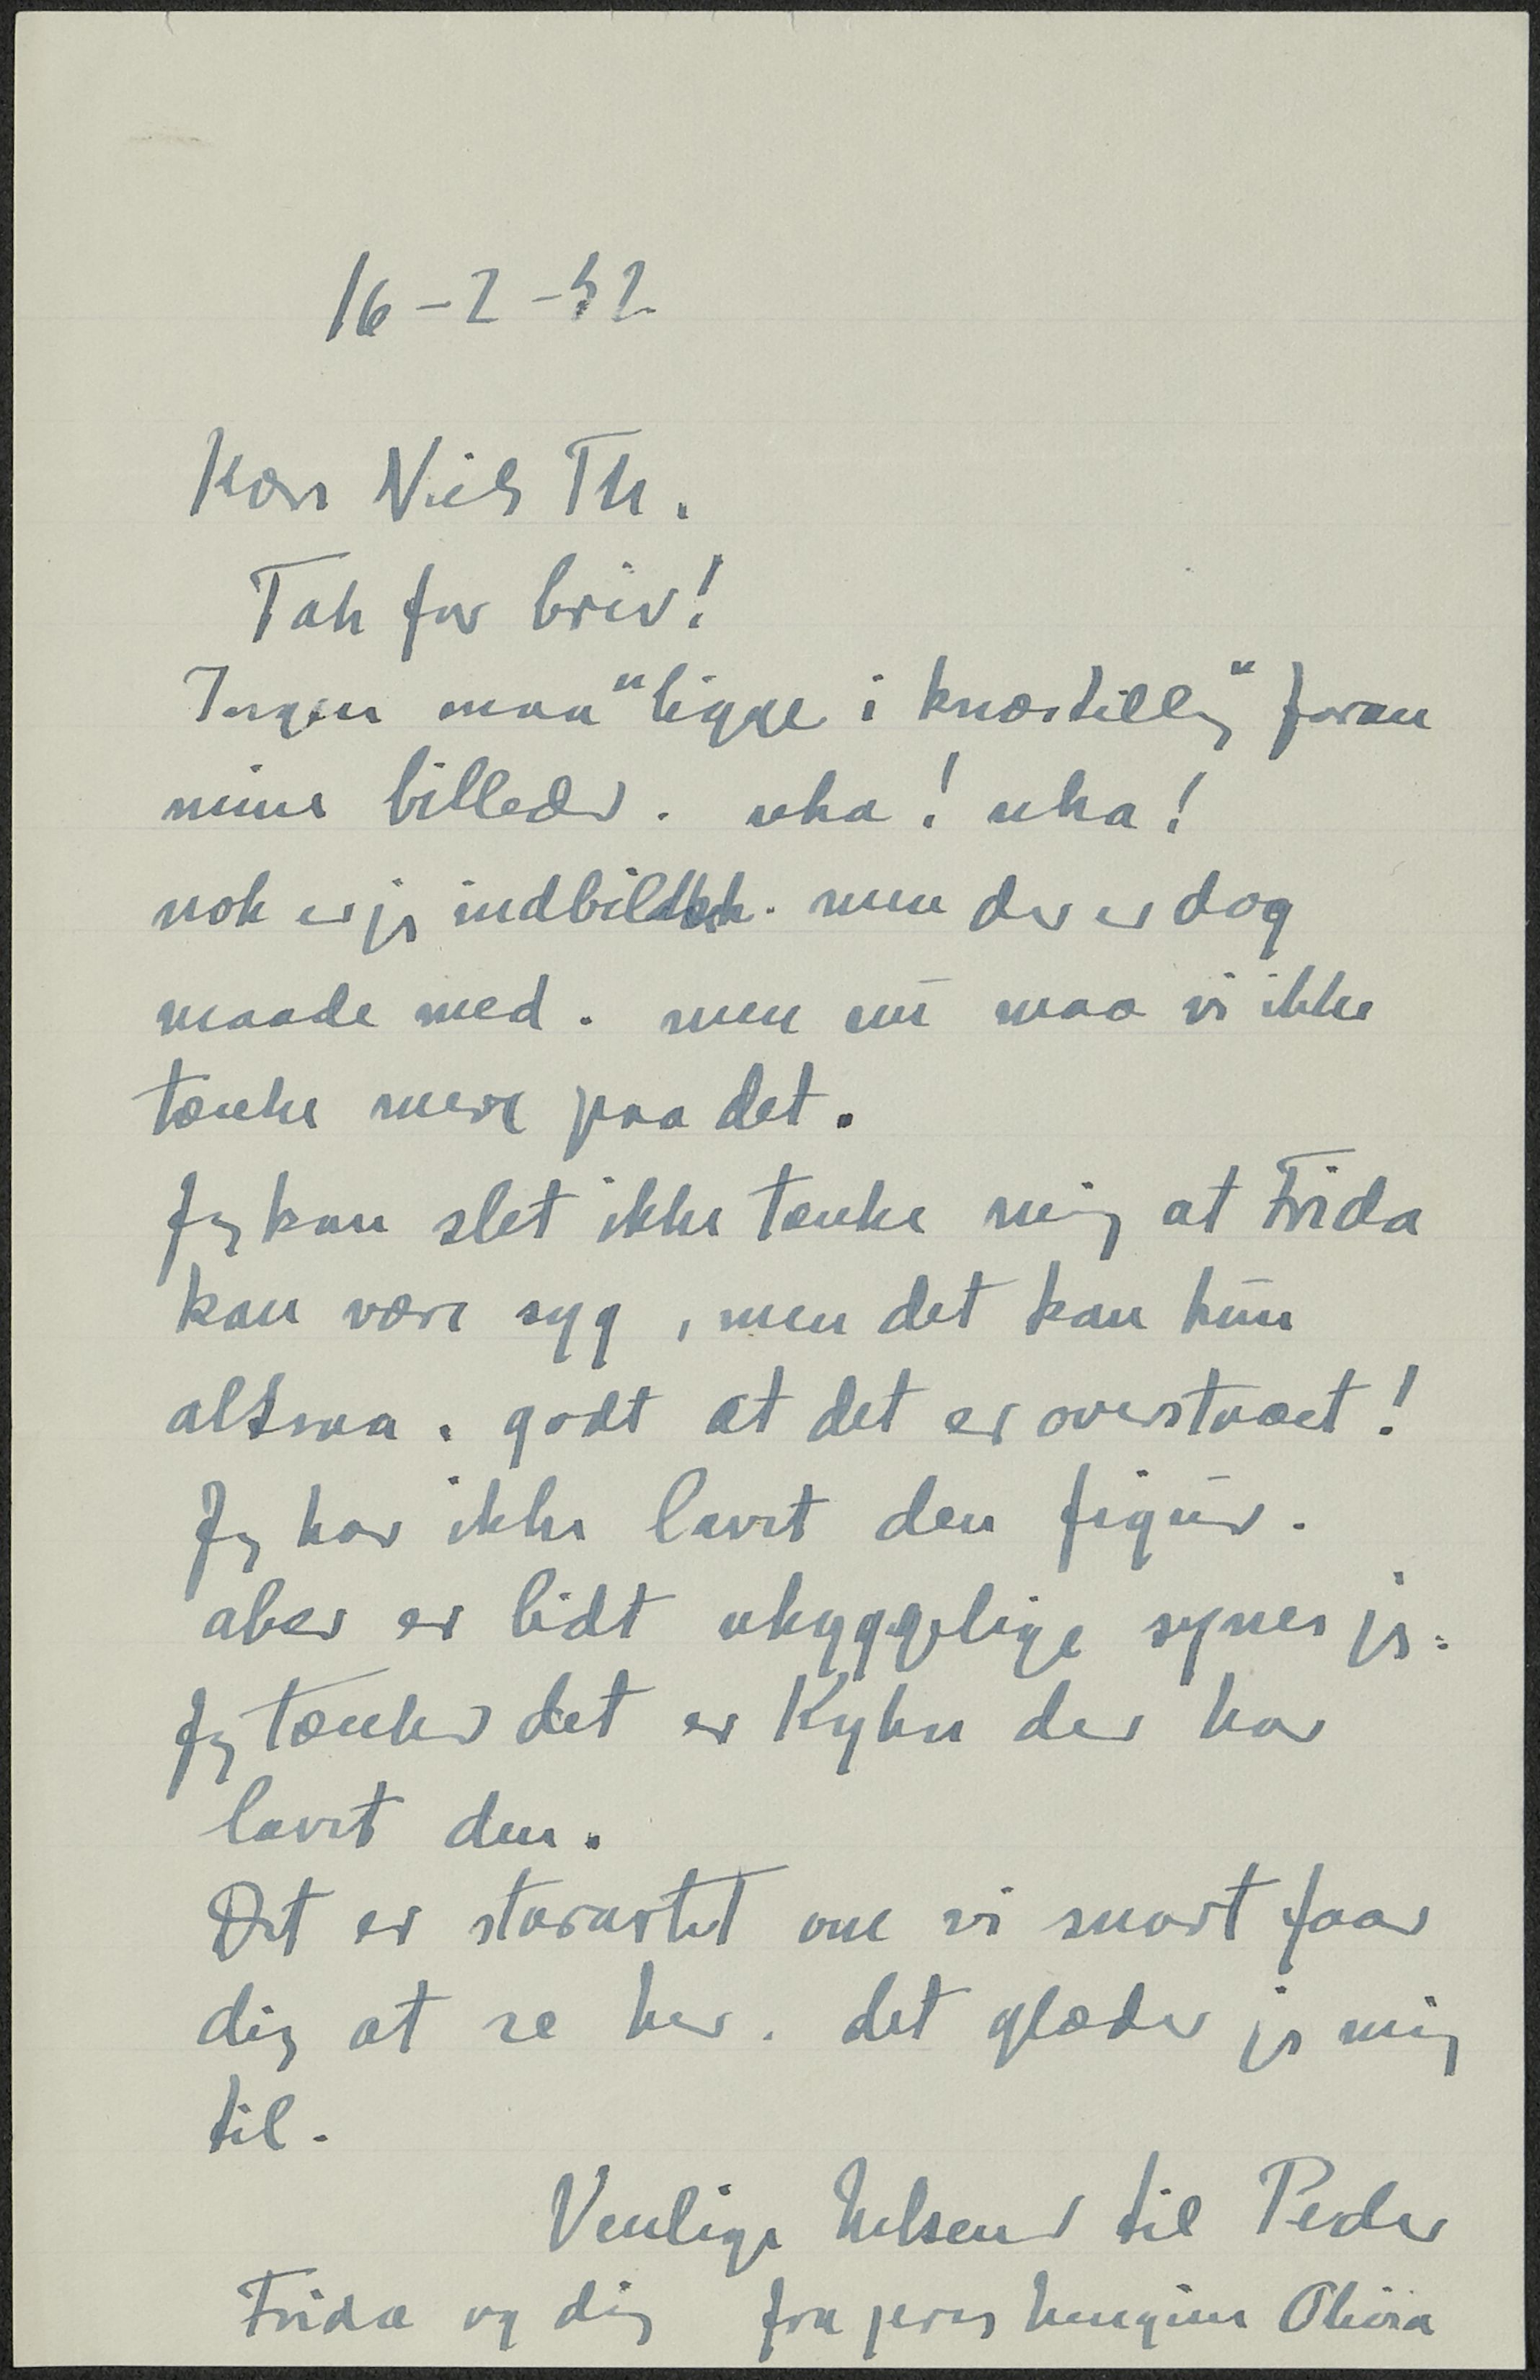 16-2-52
Kære Niels Th.
Tak for brev!
Ingen maa "ligge i knæstillg" foran
mine billeder. uha! uha!
nok er jeg indbildsk. men der er dog
maade med. men nu maa vi ikke
tænke mere paa det.
Jeg kan slet ikke tænke mig at Frida
kan være syg, men det kan hun
altsaa. godt at det er overstaaet!
Jeg har ikke lavet den figur.
aber er lidt uhyggelige synes jeg.
Jeg tænker det er Kyhn der har
lavet den.
Det er storartet om vi snart faar
dig at se her. det glæder jeg mig
til.
Venlige hilsener til Peder
Frida og dig fra jeres hengivne Olivia